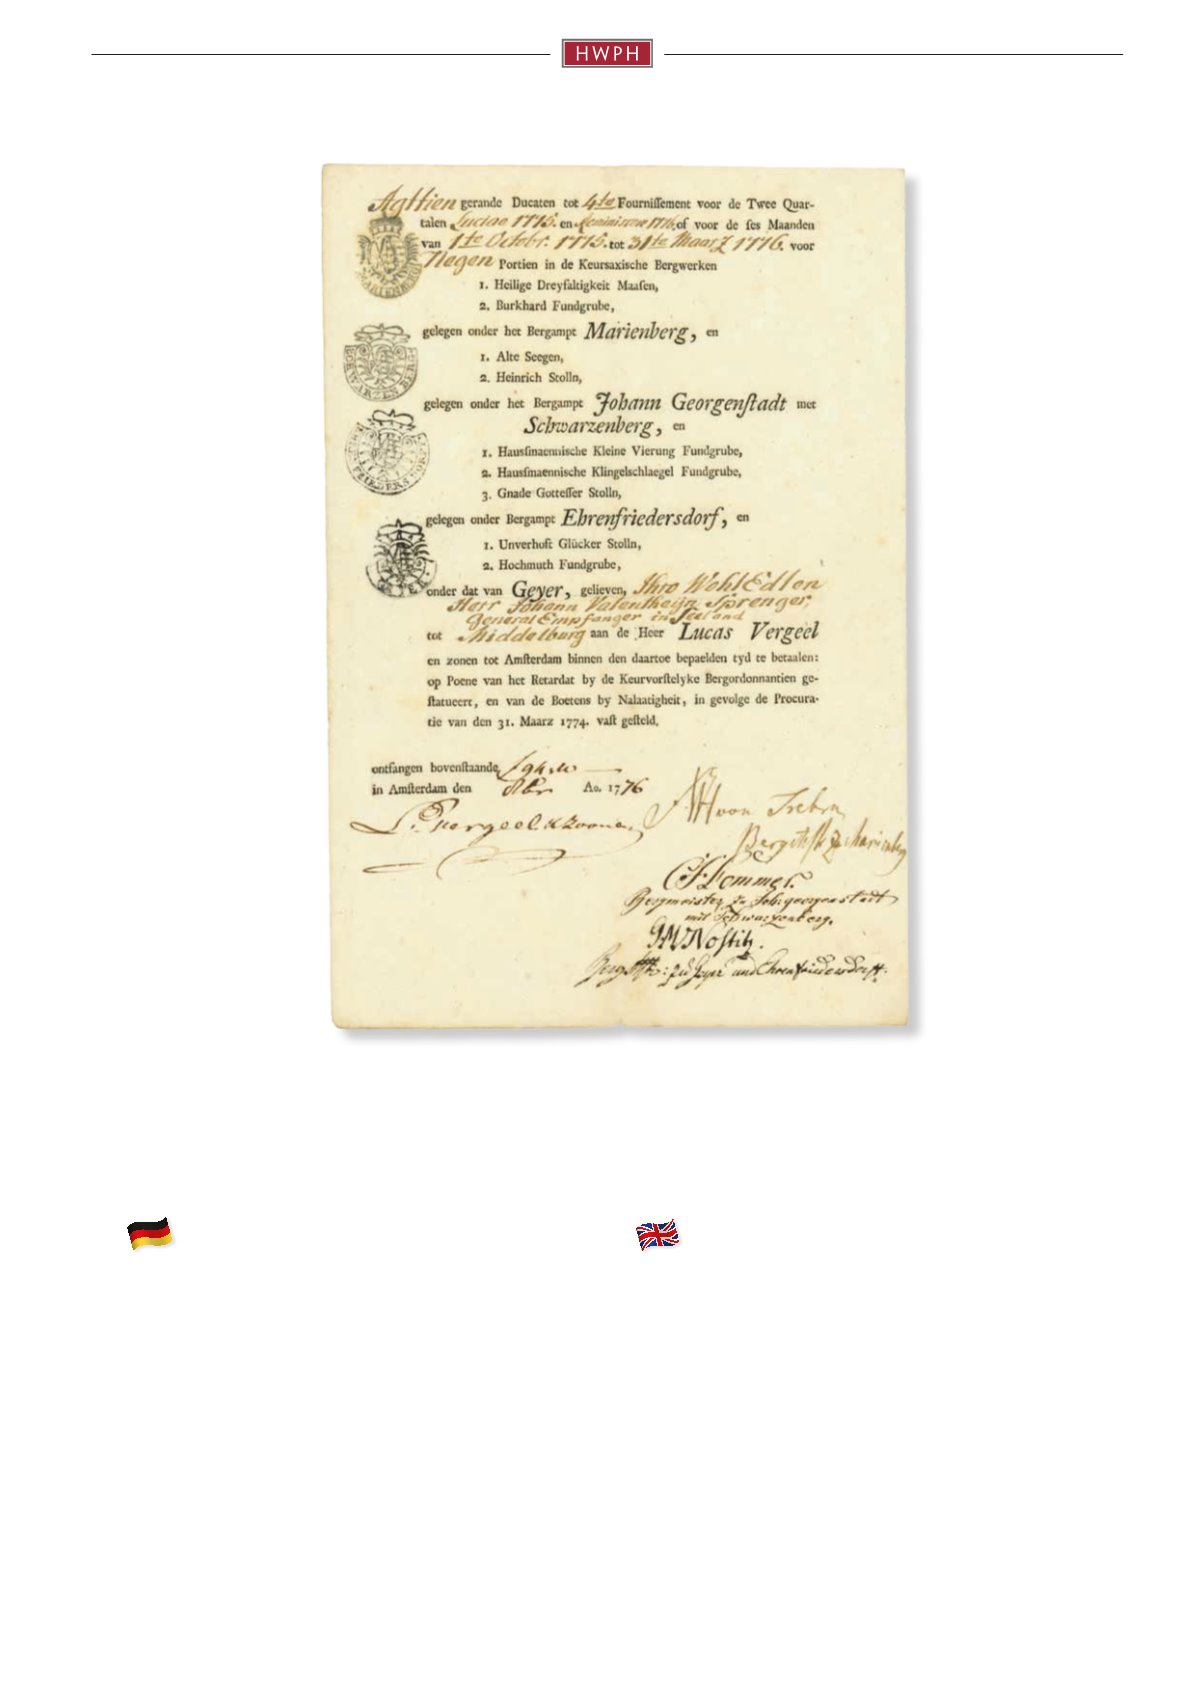 HWPH
Agttien gerande Ducaten tot 4te Fourniſſement voor de Twee Quar-
talen Luciae 1775. en Reminiscere 1776, of voor de ſes Maanden
van 1te Octobr. 1775. tot 31te Maarz 1776. voor
Negen Portien in de Keursaxische Bergwerken
MARIENBERG
1. Heilige Dreyfaltigkeit Maaſen,
2. Burkhard Fundgrube,
gelegen onder het Bergampt Marienberg, en
SCHWARZENBERG
1. Alte Seegen,
2. Heinrich Stolln,
gelegen onder het Bergampt Johann Georgenſtadt met
Schwarzenberg, en
1. Hausſmaennische Kleine Vierung Fundgrube,
2. Hausſmaennische Klingelschlaegel Fundgrube,
3. Gnade Gotteſſer Stolln,
gelegen onder Bergampt Ehrenfriedersdorf, en
1. Unverhoft Glücker Stolln,
2. Hochmuth Fundgrube,
GEYER.
onder dat van Geyer, gelieven, Ihro WohlEdlen
Herr Johann Valentheijn Sprenger,
General Empfanger in Seeland
tot Middelburg aan de Heer Lucas Vergeel
en zonen tot Amſterdam binnen den daartoe bepaelden tyd te betaalen:
op Poene van het Retardat by de Keurvorſtelyke Bergordonnantien ge-
ſtatueert, en van de Boetens by Nalaatigheit, in gevolge de Procura-
tie van den 31. Maarz 1774. vaſt geſteld.
ontfangen bovenſtaande
in Amſterdam den 8br Ao. 1776
L. Vergeel & Zoonen
von Trebra
Bergmstr zu Marienberg
C F Lommer.
Bergmeister zu Joh:georgenstadt
mit Schwarzenberg.
GMVNoſtitz.
Bergmstr: zu Geyer und Ehrenfriedersdorff.